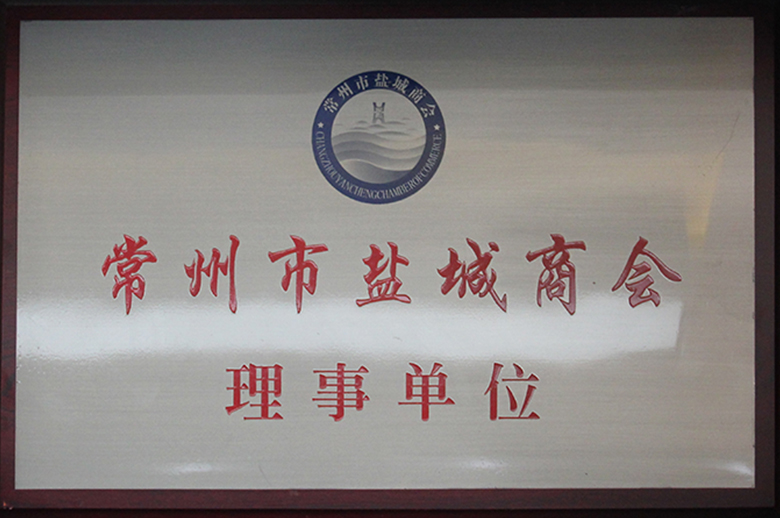 常州市盐城商会
CHANGZHOUYANCHENGCHAMBEROFCOMMERCE
常州市盐城商会
理事单位